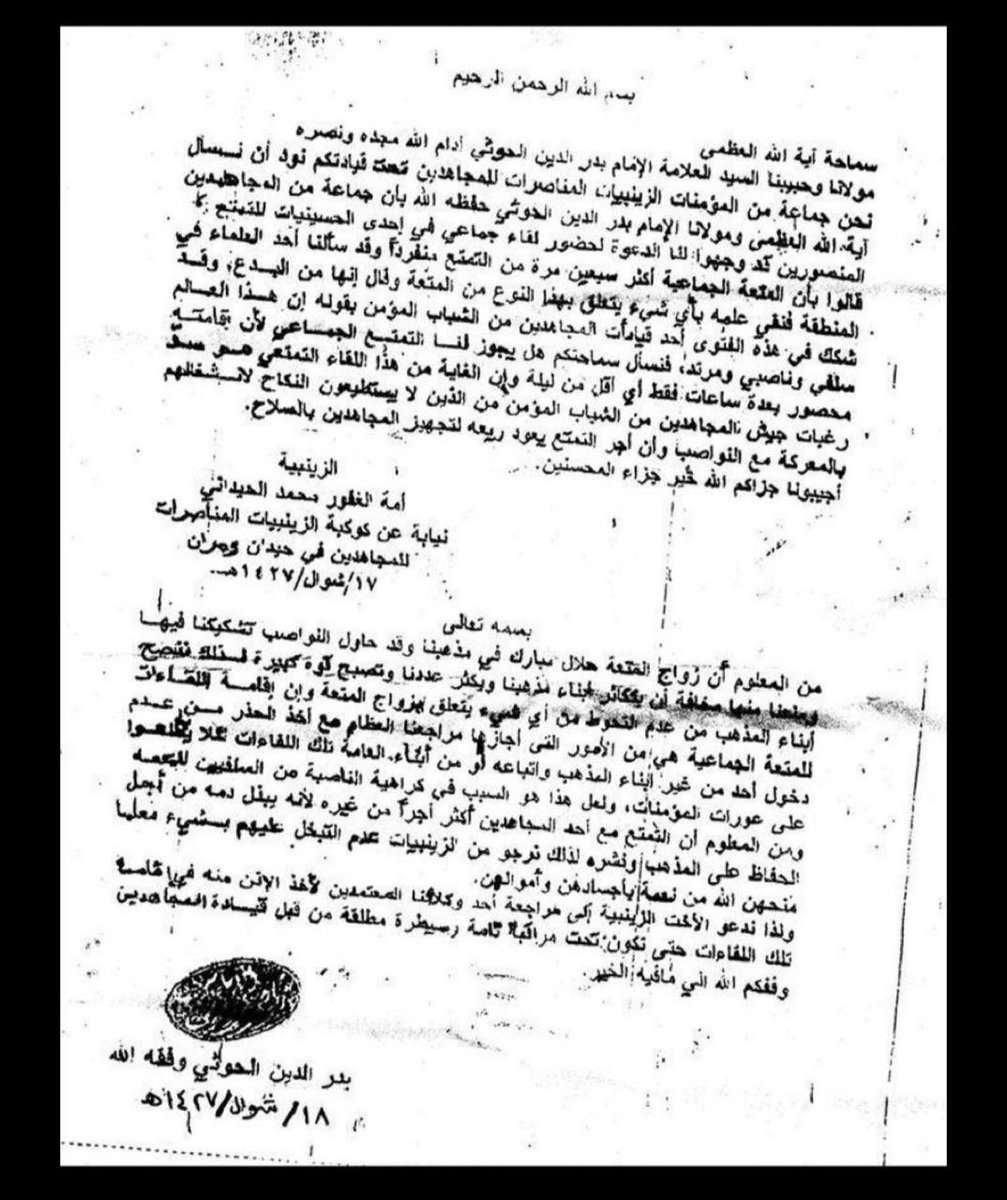 بسم الله الرحمن الرحيم
سماحة آية الله العظمى
مولانا وحبيبنا السيد العلامة الإمام بدر الدين الحوثي أدام الله مجده ونصره
نحن جماعة من المؤمنات الزينبيات المناصرات للمجاهدين تحت قيادتكم نود أن نسأل
آية الله العظمى ومولانا الإمام بدر الدين الحوثي حفظه الله بأن جماعة من المجاهدين
المنصورين قد وجهوا لنا الدعوة لحضور لقاء جماعي في إحدى الحسينيات للتمتع
قالوا بأن المتعة الجماعية أكثر سبعين مرة من التمتع منفرداً وقد سألنا أحد العلماء في
المنطقة فنفي علمه بأي شيء يتعلق بهذا النوع من المتعة وقال إنها من البدع، وقد
شكك في هذه الفتوى أحد قيادات المجاهدين من الشباب المؤمن بقوله إن هذا العالم
سلفي وناصبي ومرتد، فنسأل سماحتكم هل يجوز لنا التمتع الجماعي لأن إقامته
محصور بعدة ساعات فقط أي أقل من ليلة وإن الغاية من هذا اللقاء التمتعي هو سد
رغبات جيش المجاهدين من الشباب المؤمن من الذين لا يستطيعون النكاح لانشغالهم
بالمعركة مع النواصب وأن أجر التمتع يعود ريعه لتجهيز المجاهدين بالسلاح.
أجيبونا جزاكم الله خير جزاء المحسنين.
الزينبية
أمة الغفور محمد الحيداني
نيابة عن كوكبة الزينبيات المناصرات
للمجاهدين في حيدان ومران
١٧/شوال/١٤٢٧هـ
بسمه تعالى
من المعلوم أن زواج المتعة حلال مبارك في مذهبنا وقد حاول النواصب تشكيكنا فيها
ومنعنا منها مخافة أن يتكاثر أبناء مذهبنا ويكثر عددنا ونصبح قوة كبيرة لذلك ننصح
أبناء المذهب من عدم التحوط من أي شيء يتعلق بزواج المتعة وإن إقامة اللقاءات
للمتعة الجماعية هي من الأمور التى أجازها مراجعنا العظام مع أخذ الحذر من عدم
دخول أحد من غير أبناء المذهب واتباعه أو من أبناء العامة تلك اللقاءات لئلا يطلعوا
على عورات المؤمنات، ولعل هذا هو السبب في كراهية الناصبة من السلفيين للمتعه
ومن المعلوم أن التمتع مع أحد المجاهدين أكثر أجراً من غيره لأنه يبذل دمه من أجل
الحفاظ على المذهب ونشره لذلك نرجو من الزينبيات عدم التبخل عليهم بشيء مما
منحهن الله من نعمة بأجسادهن وأموالهن.
ولذا ندعو الأخت الزينبية إلى مراجعة أحد وكلائنا المعتمدين لأخذ الإذن منه في إقامة
تلك اللقاءات حتى تكون تحت مراقبة تامة وسيطرة مطلقة من قبل قيادة المجاهدين
وفقكم الله الي مافيه الخير.
بدر الدين الحوثي وفقه الله
١٨/شوال/١٤٢٧هـ